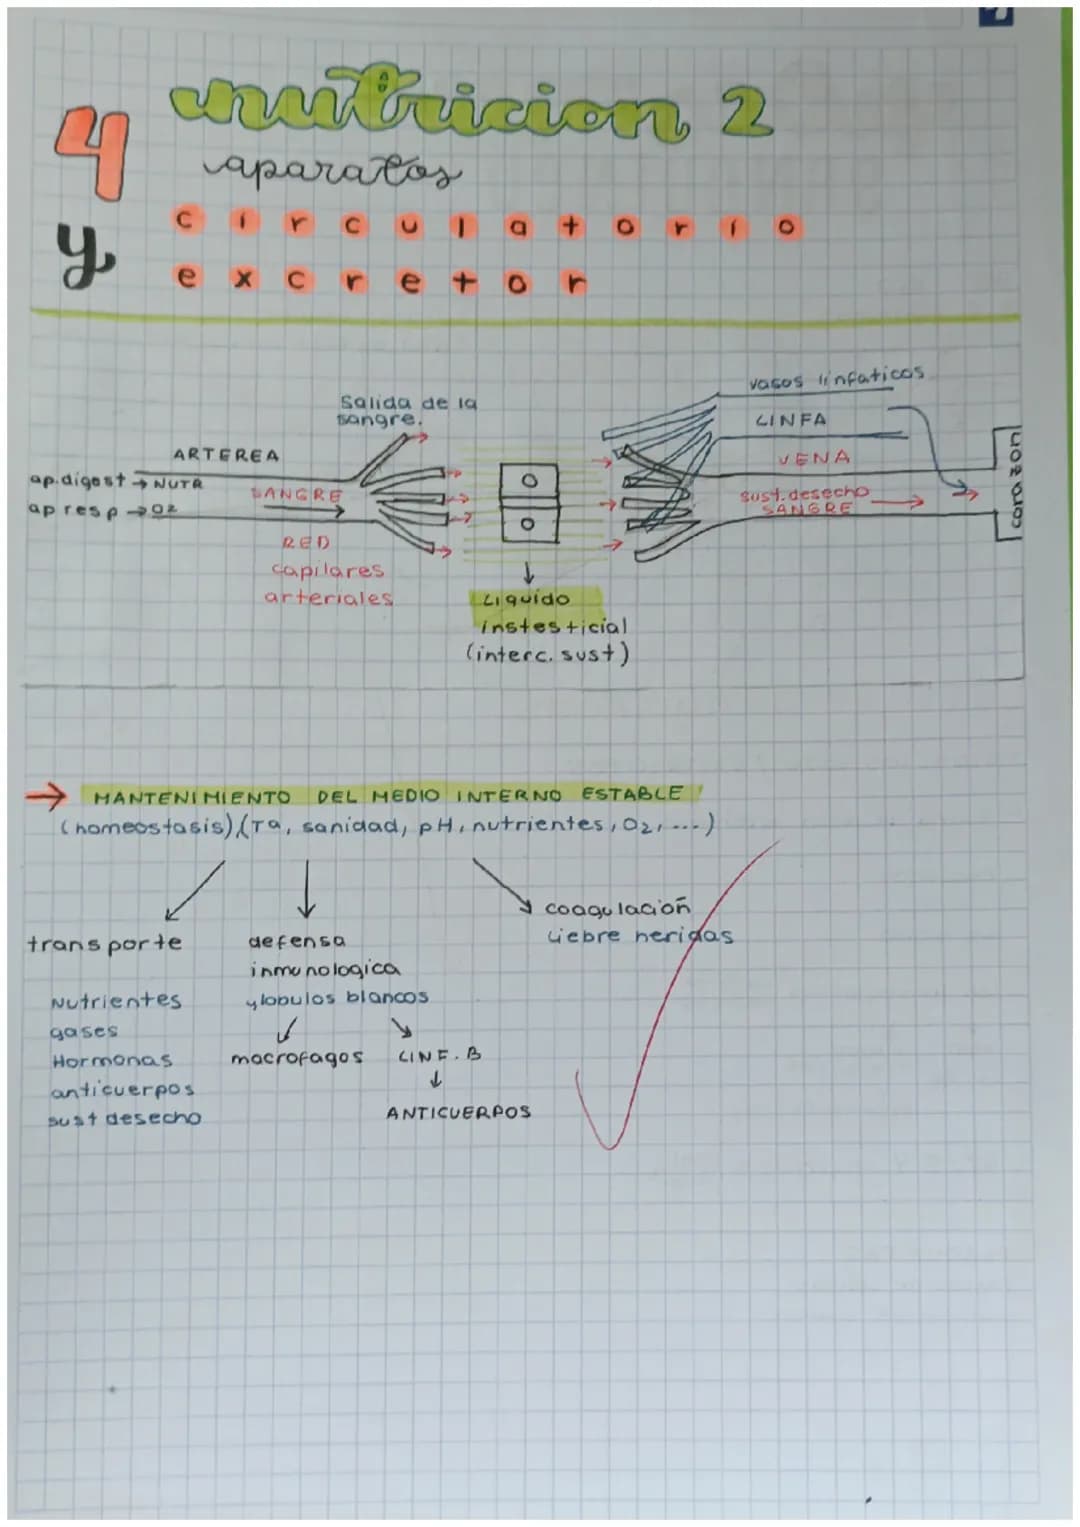 4 nutricion 2
aparatos
circulatorio
y excretor
vasos linfaticos
Salida de la
sangre.
LINFA
ARTEREA
VENA
ap.digest → NUTR
SANGRE
sust. desecho
ap resp → O2
SANGRE
corazon
RED
capilares
arteriales
Liquido
instesticial
(interc. sust)
→ MANTENIMIENTO DEL MEDIO INTERNO ESTABLE
(homeostasis) (Tª, sanidad, pH, nutrientes, O2, ...)
transporte
defensa
inmunologica
globulos blancos
coagulacion
Liebre heridas
Nutrientes
gases
Hormonas
anticuerpos
sust desecho
macrofagos LINF. B
ANTICUERPOS